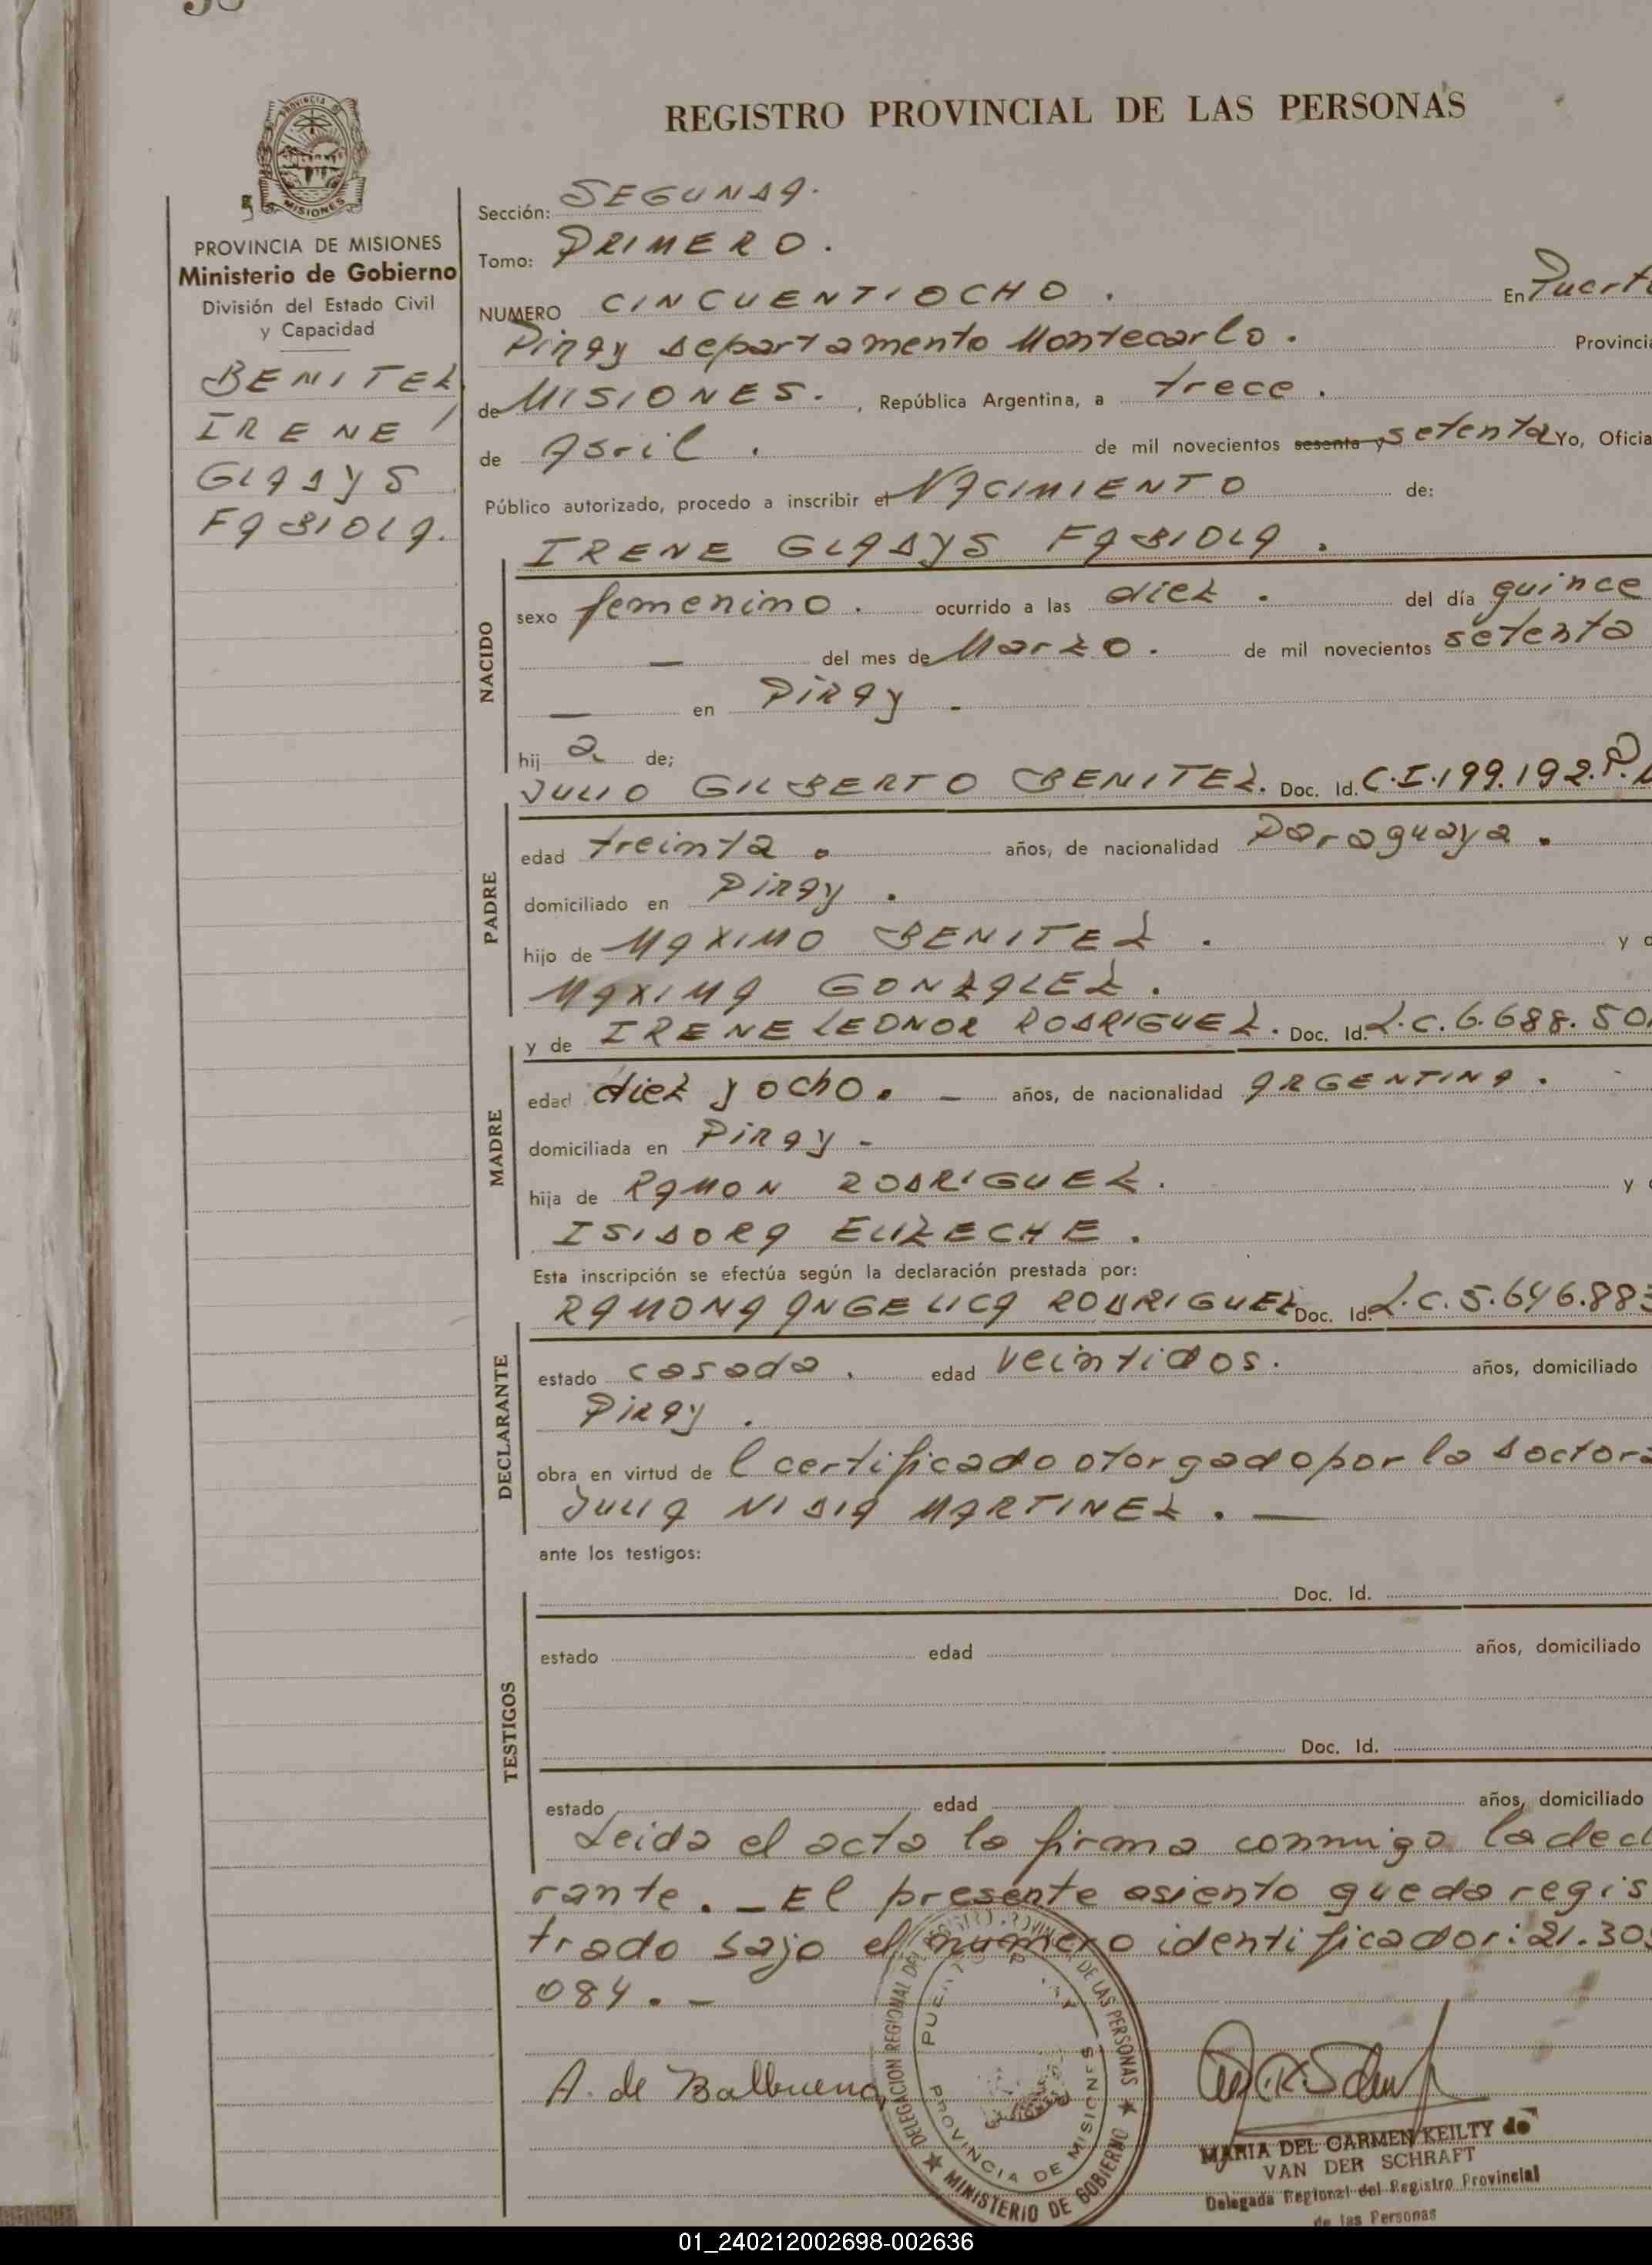 REGISTRO PROVINCIAL DE LAS PERSONAS
PROVINCIA DE MISIONES
Ministerio de Gobierno
División del Estado Civil
y Capacidad
BENITEZ
IRENE
GLADYS
FABIOLA.
Sección: SEGUNDA.
Tomo: PRIMERO.
NUMERO CINCUENTIOCHO. En Puerto
Piray Departamento Montecarlo. Provincia
de MISIONES., República Argentina, a trece.
de Abril. de mil novecientos sesenta y setenta Yo, Oficia
Público autorizado, procedo a inscribir el NACIMIENTO de:
IRENE GLADYS FABIOLA.
NACIDO
sexo femenino. ocurrido a las diez. del día quince
— del mes de Marzo. de mil novecientos setenta
— en PIRAY -
hij a de;
JULIO GILBERTO BENITEZ. Doc. Id. C.I. 199.192. P.
PADRE
edad treinta. años, de nacionalidad Paraguaya.
domiciliado en PIRAY.
hijo de MAXIMO BENITEZ. y d
MAXIMA GONZALEZ.
y de IRENE LEONOR RODRIGUEZ. Doc. Id. L.C. 6.688.50
MADRE
edad diez y ocho. — años, de nacionalidad ARGENTINA.
domiciliada en PIRAY -
hija de RAMON RODRIGUEZ. y d
ISIDORA ELIZECHE.
Esta inscripción se efectúa según la declaración prestada por:
RAMONA ANGELICA RODRIGUEZ Doc. Id. L.C. 5.646.883
DECLARANTE
estado casada. edad veintidos. años, domiciliado
PIRAY.
obra en virtud de l certificado otorgado por la Doctora
JULIA NIDIA MARTINEZ. —
ante los testigos:
TESTIGOS
Doc. Id.
estado edad años, domiciliado
Doc. Id.
estado edad años, domiciliado
Leida el acta la firma conmigo la decl
rante. _ El presente asiento queda regis
trado bajo el numero identificador: 21.30
084. -
A. de Balbuena
DELEGACION REGIONAL DEL REGISTRO PROVINCIAL DE LAS PERSONAS
PROVINCIA DE MISIONES
MINISTERIO DE GOBIERNO
MARIA DEL CARMEN KEILTY de
VAN DER SCHRAFT
Delegada Regional del Registro Provincial
de las Personas
01_240212002698-002636